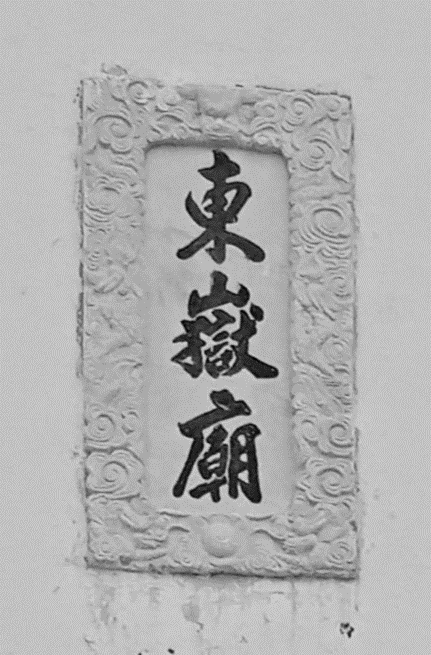 東嶽廟